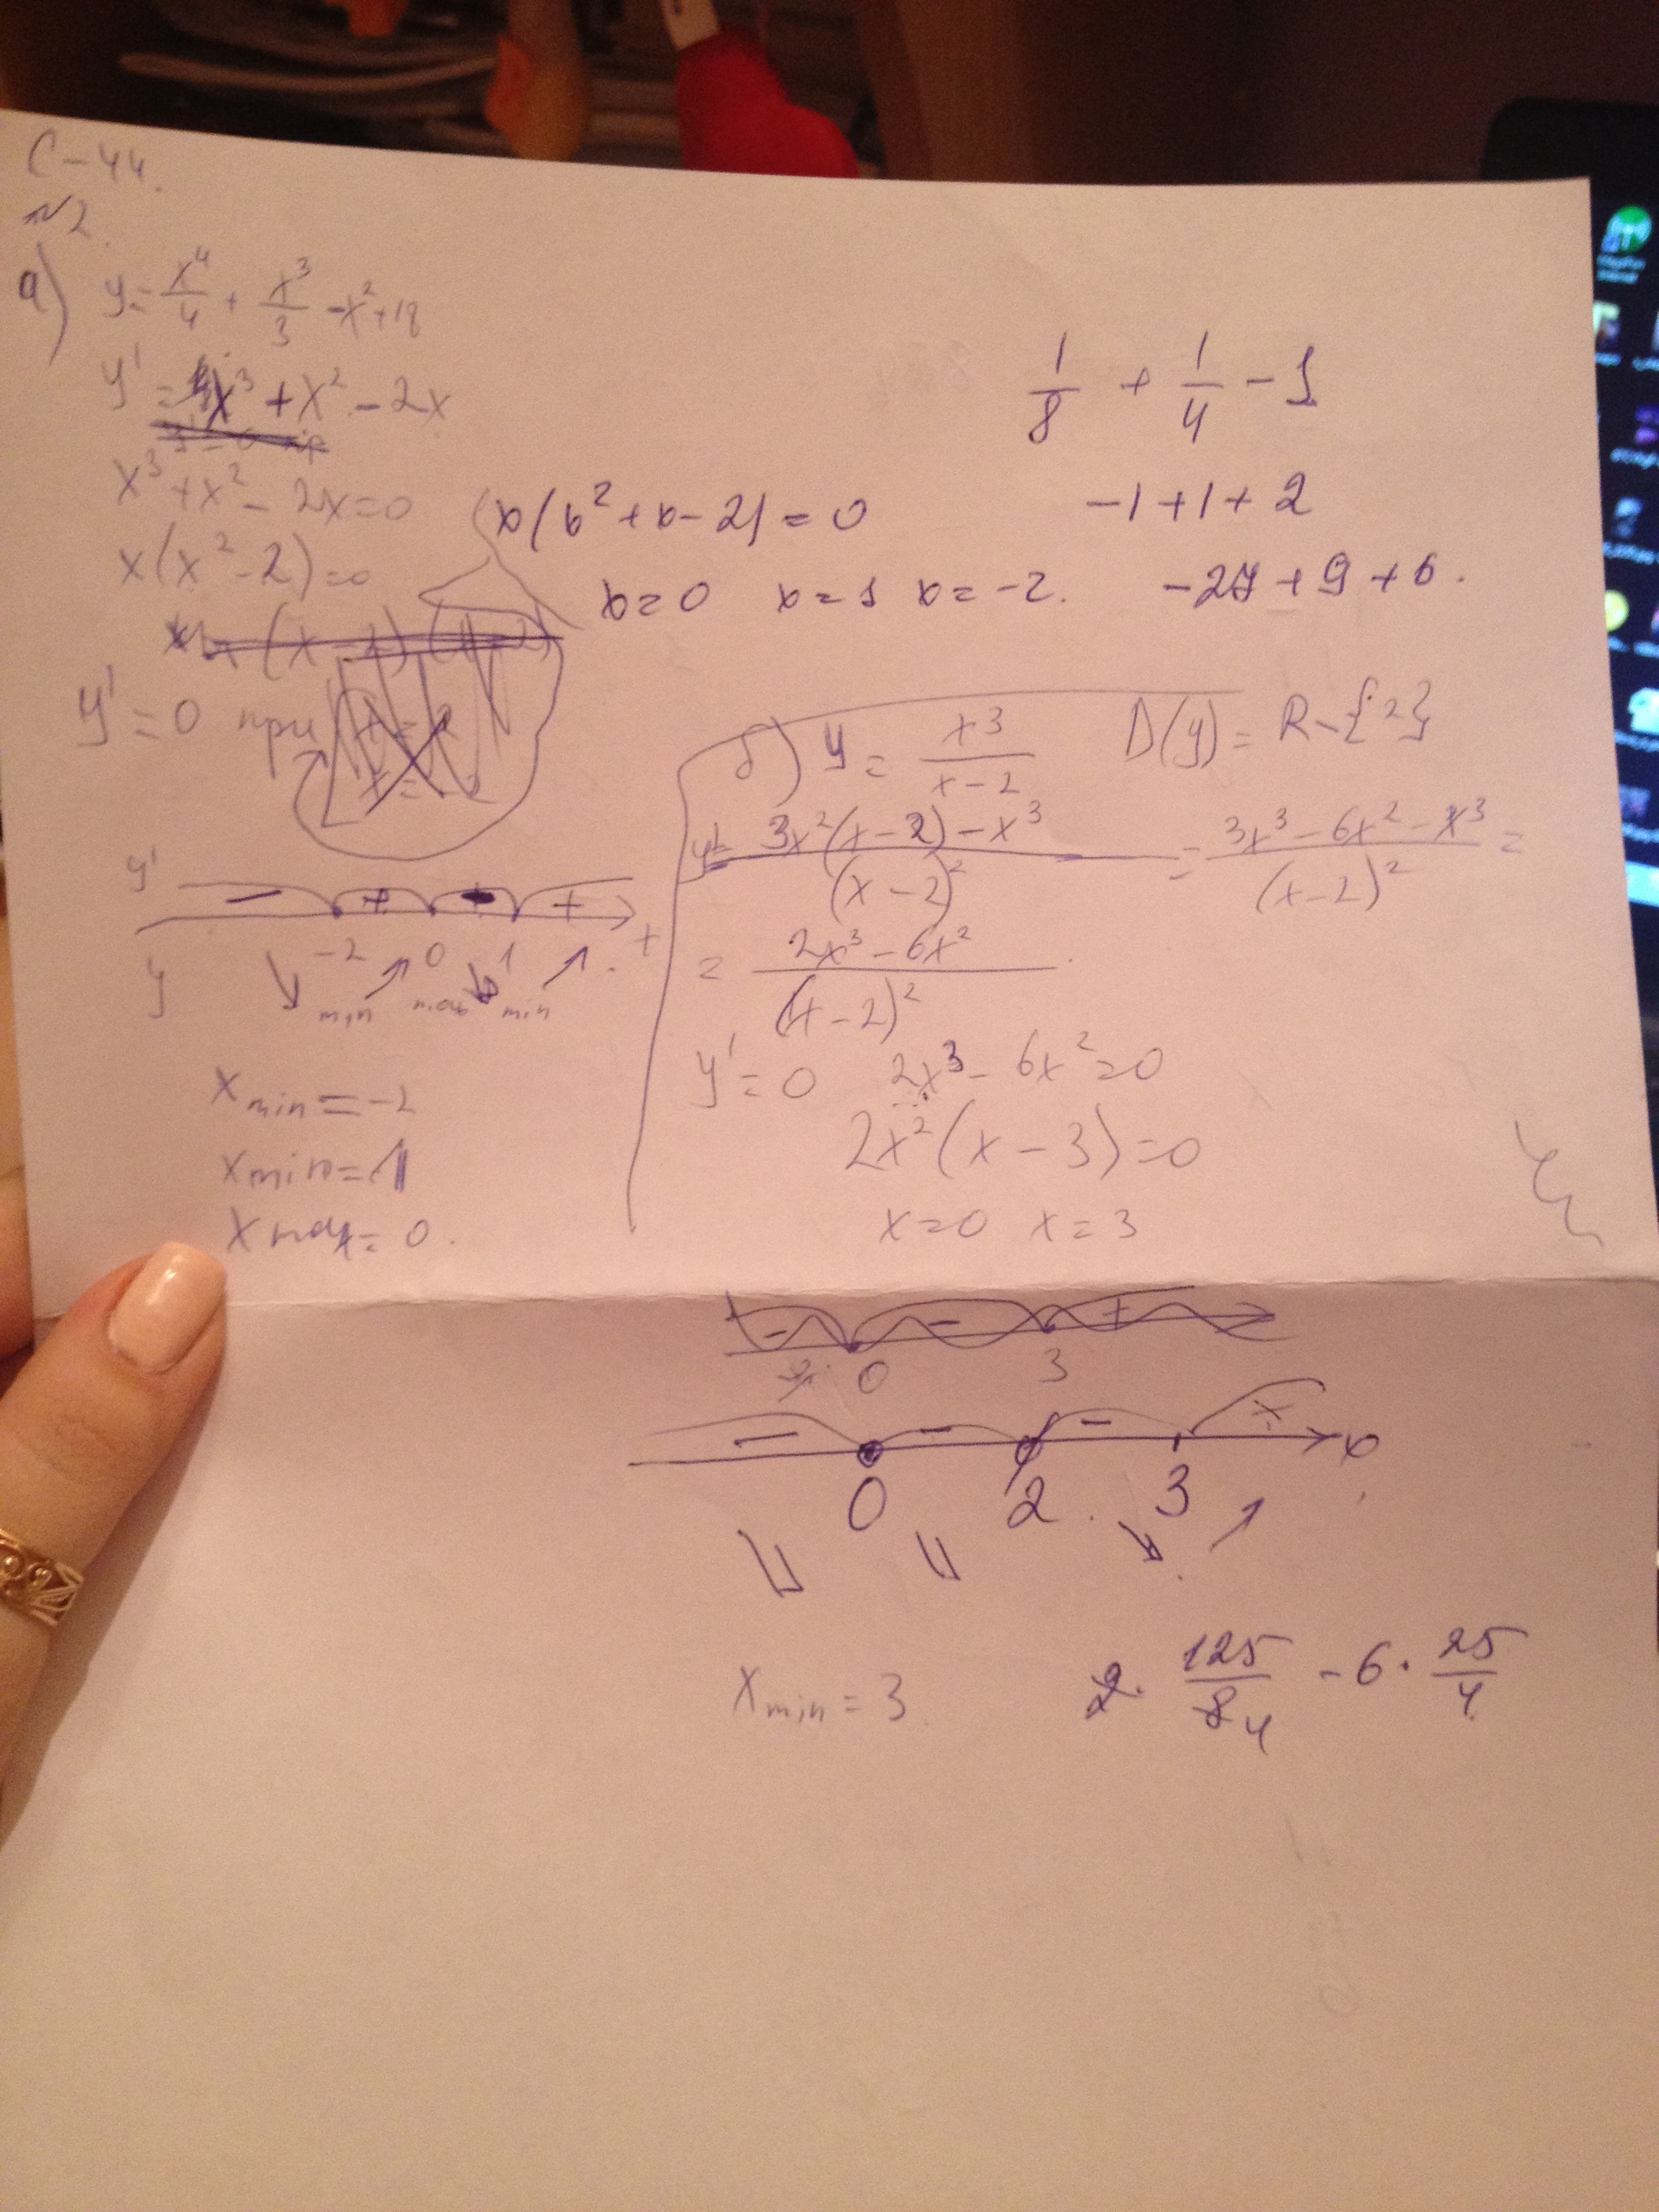 С-44.
№2.
а) y = x⁴/4 + x³/3 - x² + 18
y' = x³ + x² - 2x
x³ + x² - 2x = 0
x(x² - 2) = 0
x(x² + x - 2) = 0
x = 0 x = 1 x = -2.
y' = 0 при
y' - + - + x
y -2 0 1
min max min
x min = -2
x min = 1
x max = 0.
1/8 + 1/4 - 1
-1 + 1 + 2
-27 + 9 + 6.
б) y = x³/(x - 2) D(y) = R - {2}
y' = (3x²(x - 2) - x³)/(x - 2)² = (3x³ - 6x² - x³)/(x - 2)² =
= (2x³ - 6x²)/(x - 2)².
y' = 0 2x³ - 6x² = 0
2x²(x - 3) = 0
x = 0 x = 3
- - +
0 3
- - - + x
0 2 3
x min = 3.
2 · 125/8 4 - 6 · 25/4